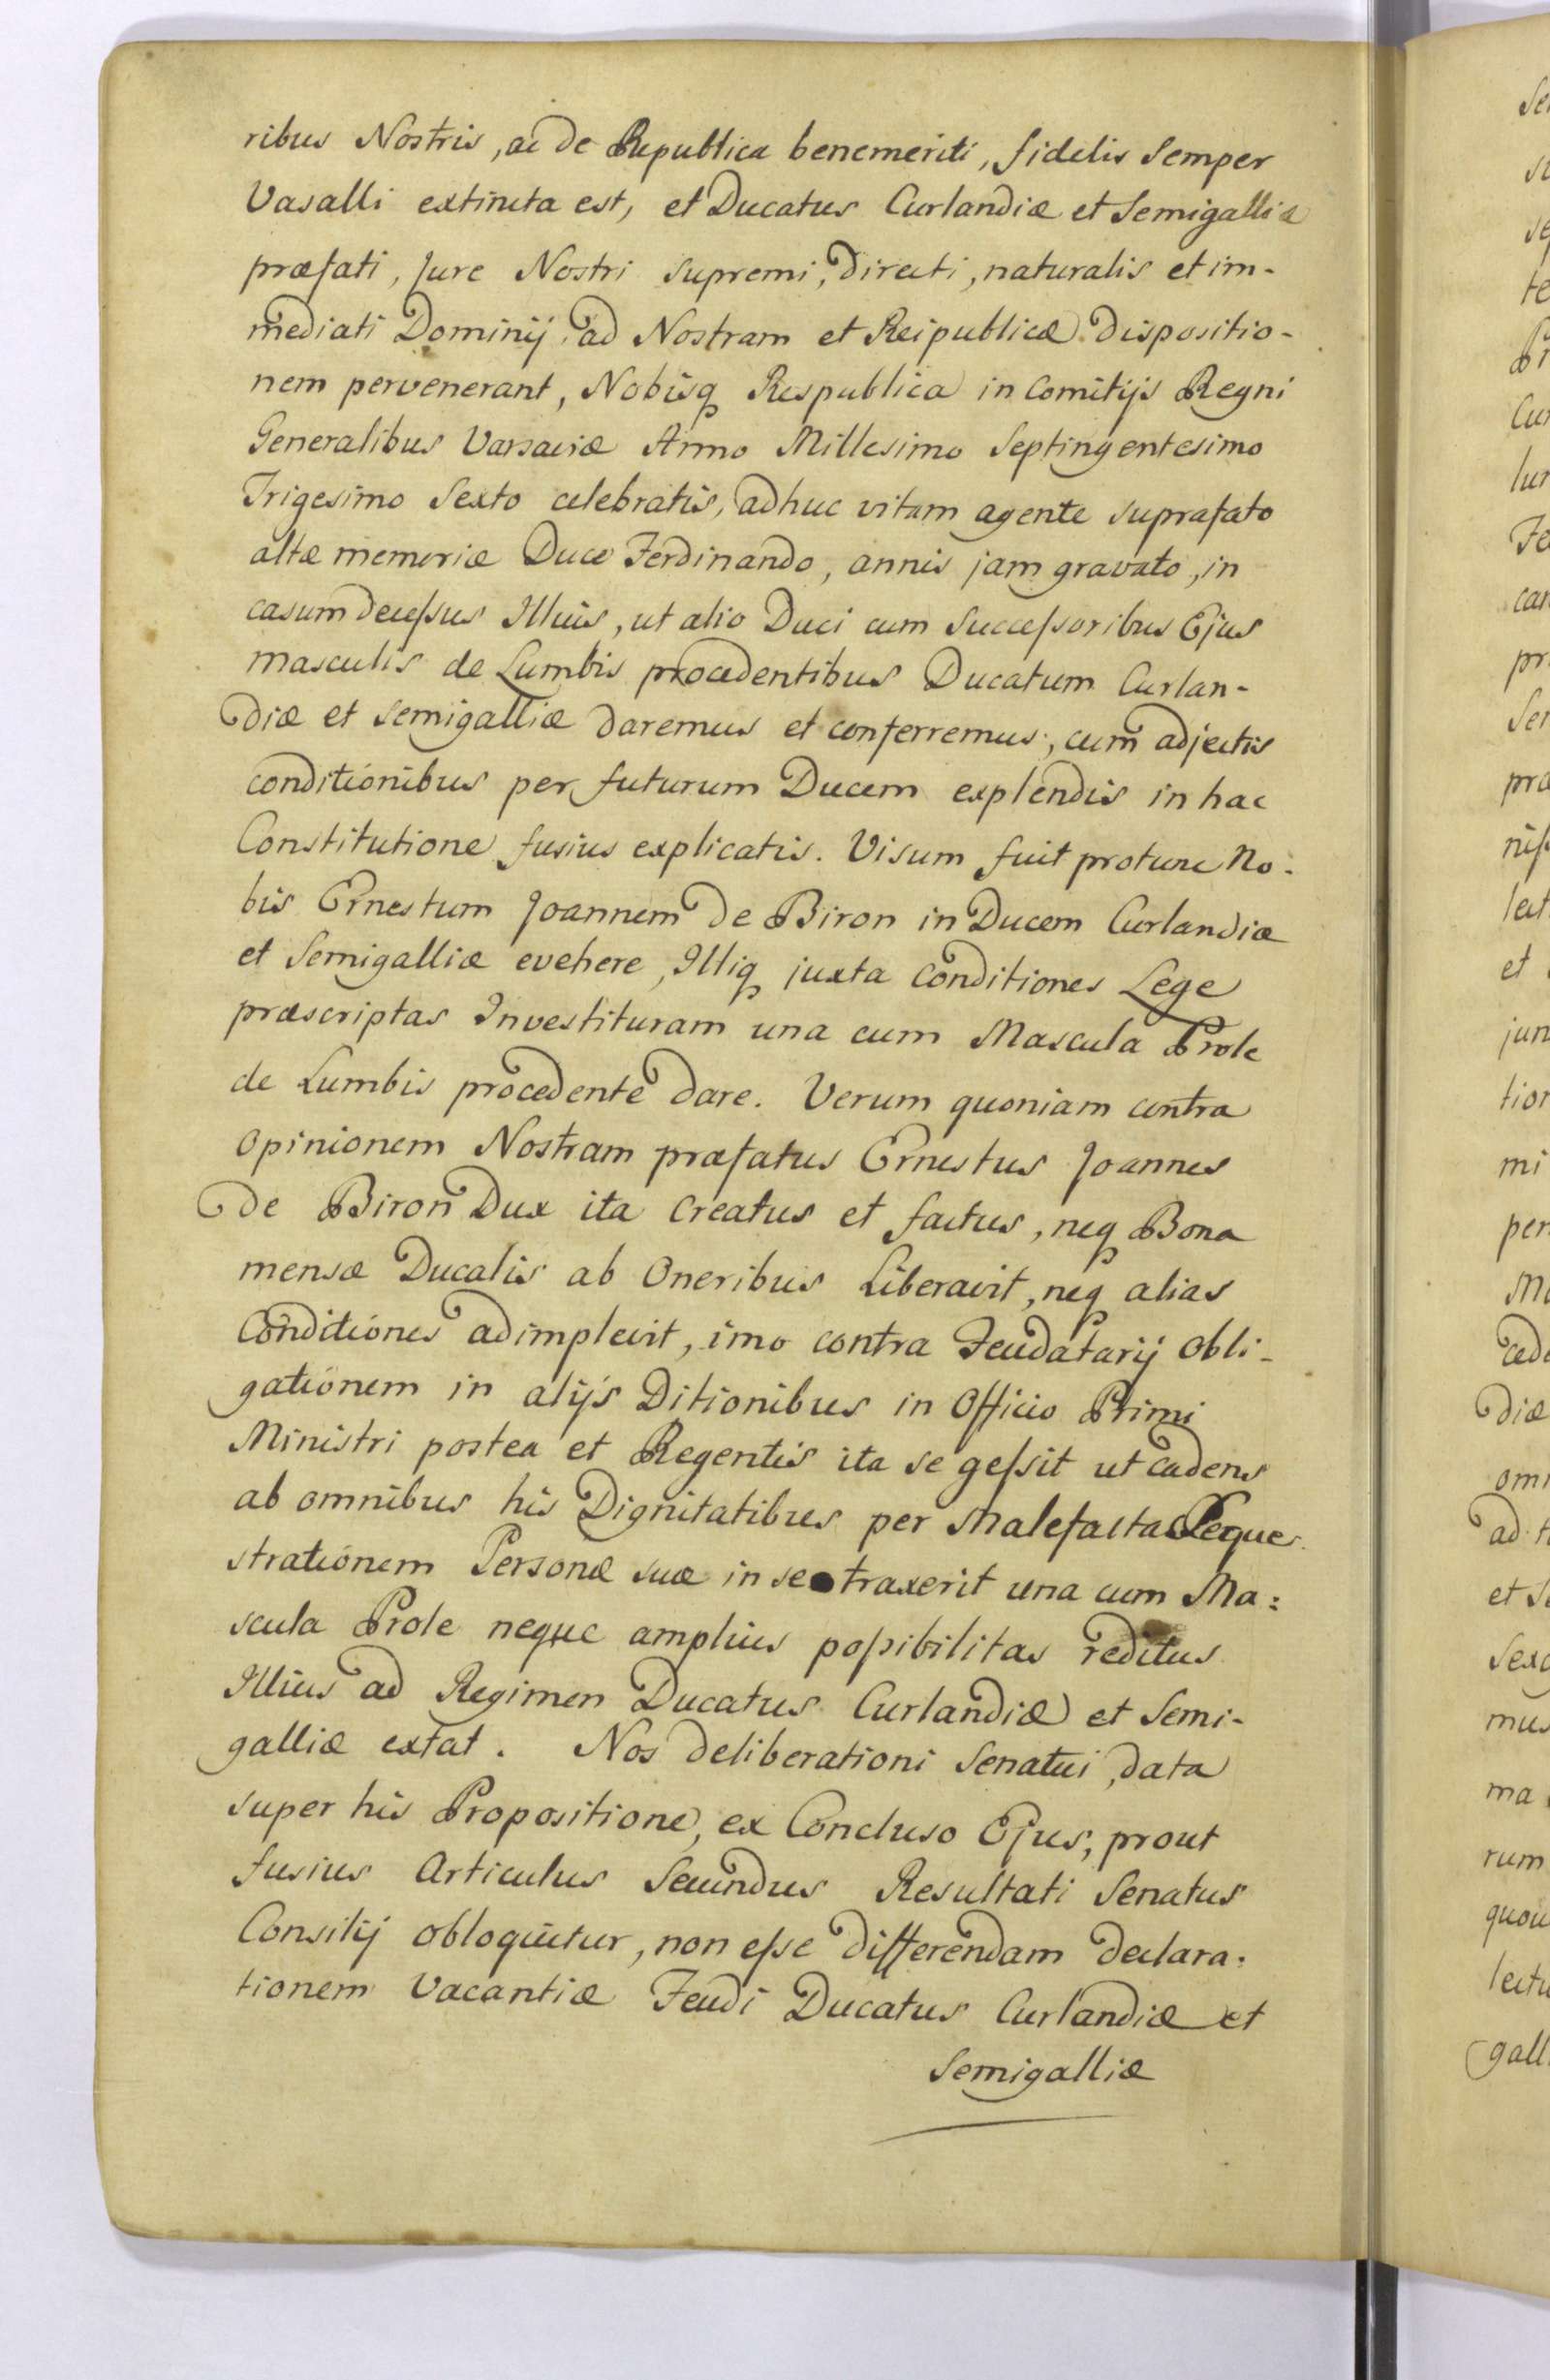 ribus Nostris, ac de Republica benemeriti, fidelis Semper
Vasalli extincta est, et Ducatus Curlandiæ et Semigalliæ
præfati, Jure Nostri supremi, directi, naturalis et im-
mediati Dominij ad Nostram et Reipublicæ dispositio-
nem pervenerant, Nobisq Respublica in Comitijs Regni
Generalibus Varsaviæ Anno Millesimo Septingentesimo
Trigesimo Sexto celebratis, adhuc vitam agente suprafato
altæ memoriæ Duce Ferdinando, annis jam gravato, in
casum decessus Illius, ut alio Duci cum Successoribus Ejus
masculis de Lumbis procedentibus Ducatum Curlan-
diæ et Semigalliæ daremus et conferremus, cum adjectis
conditionibus per futurum Ducem explendis in hac
Constitutione fusius explicatis. Visum fuit protunc No-
bis Ernestum Joannem de Biron in Ducem Curlandiæ
et Semigalliæ evehere, Illiq juxta Conditiones Lege
præscriptas Investituram una cum Mascula Prole
de Lumbis procedente dare. Verum quoniam contra
opinionem Nostram præfatus Ernestus Joannes
de Biron Dux ita Creatus et factus, neq Bona
mensæ Ducalis ab Oneribus Liberavit, neq alias
Conditiones adimplevit, imo contra Feudatarij Obli-
gationem in alijs Ditionibus in Officio Primi
Ministri postea et Regentis ita se gessit ut cadens
ab omnibus his Dignitatibus per Malefacta Seque-
strationem Personæ suæ in se traxerit una cum Ma-
scula Prole neque amplius possibilitas reditus
Illius ad Regimen Ducatus Curlandiæ et Semi-
galliæ extat. Nos deliberationi Senatui data
super his Propositione, ex Concluso Ejus, prout
fusius Articulus Secundus Resultati Senatus
Consilij obloquitur, non esse differendam declara-
tionem Vacantiæ Feudi Ducatus Curlandiæ et
Semigalliæ